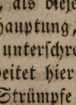 , als diese
hauptung,
unterschre
beitet hier
Strümpfe